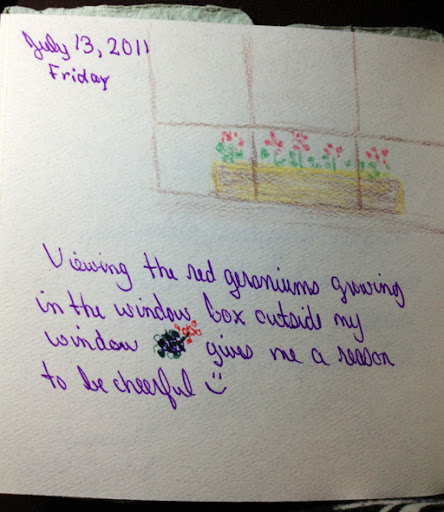 July 13, 2011
Friday
Viewing the red geraniums growing
in the window box outside my
window gives me a reason
to be cheerful